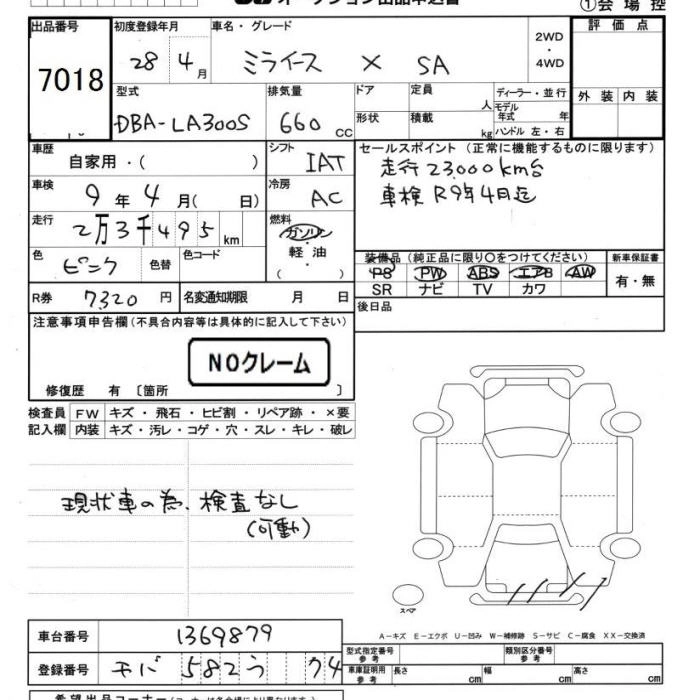 オークション出品申込書
①会場控
出品番号 初度登録年月 車名・グレード 評価点
7018 28 4月 ミライース X SA 2WD・4WD
型式 排気量 ドア 定員 人 ディーラー・並行 外装 内装
DBA-LA300S 660 cc 形状 積載 kg モデル年式 年 ハンドル 左・右
車歴 自家用・( ) シフト IAT セールスポイント (正常に機能するものに限ります)
走行23,000km台
車検 9年4月( 日) 冷房 AC 車検R9年4月迄
走行 2万3千495km 燃料 ガソリン・軽油 ( )
色 ピンク 色替 色コード 装備品 (純正品に限り○をつけてください) 新車保証書
PS PW ABS エアB AW 有・無
SR ナビ TV カワ
R券 7320円 名変通知期限 月 日 後日品
注意事項申告欄(不具合内容等は具体的に記入して下さい)
NOクレーム
修復歴 有 〔箇所 〕
検査員記入欄 FW キズ・飛石・ヒビ割・リペア跡・×要
内装 キズ・汚レ・コゲ・穴・スレ・キレ・破レ
現状車の為、検査なし
(可動)
スペア
A-キズ E-エクボ U-凹み W-補修跡 S-サビ C-腐食 XX-交換済
車台番号 1369879
型式指定番号 参考 類別区分番号 参考
登録番号 582う 74 車庫証明用 参考 長さ cm 幅 cm 高さ cm
希望出品コーナー